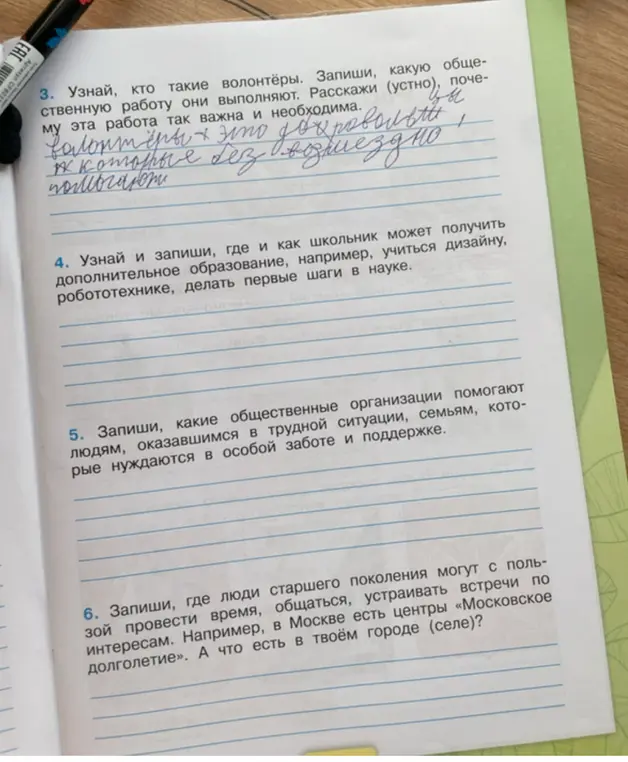 3. Узнай, кто такие волонтёры. Запиши, какую обще-
ственную работу они выполняют. Расскажи (устно), поче-
му эта работа так важна и необходима.
волонтёры это добровольцы
которые без возмездно,
помогают
4. Узнай и запиши, где и как школьник может получить
дополнительное образование, например, учиться дизайну,
робототехнике, делать первые шаги в науке.
5. Запиши, какие общественные организации помогают
людям, оказавшимся в трудной ситуации, семьям, кото-
рые нуждаются в особой заботе и поддержке.
6. Запиши, где люди старшего поколения могут с поль-
зой провести время, общаться, устраивать встречи по
интересам. Например, в Москве есть центры «Московское
долголетие». А что есть в твоём городе (селе)?